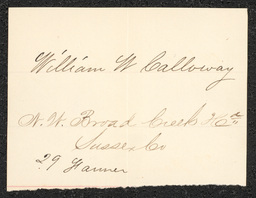 William W Calloway
N. W. Broad Creek Hd
Sussex Co
29 Farmer